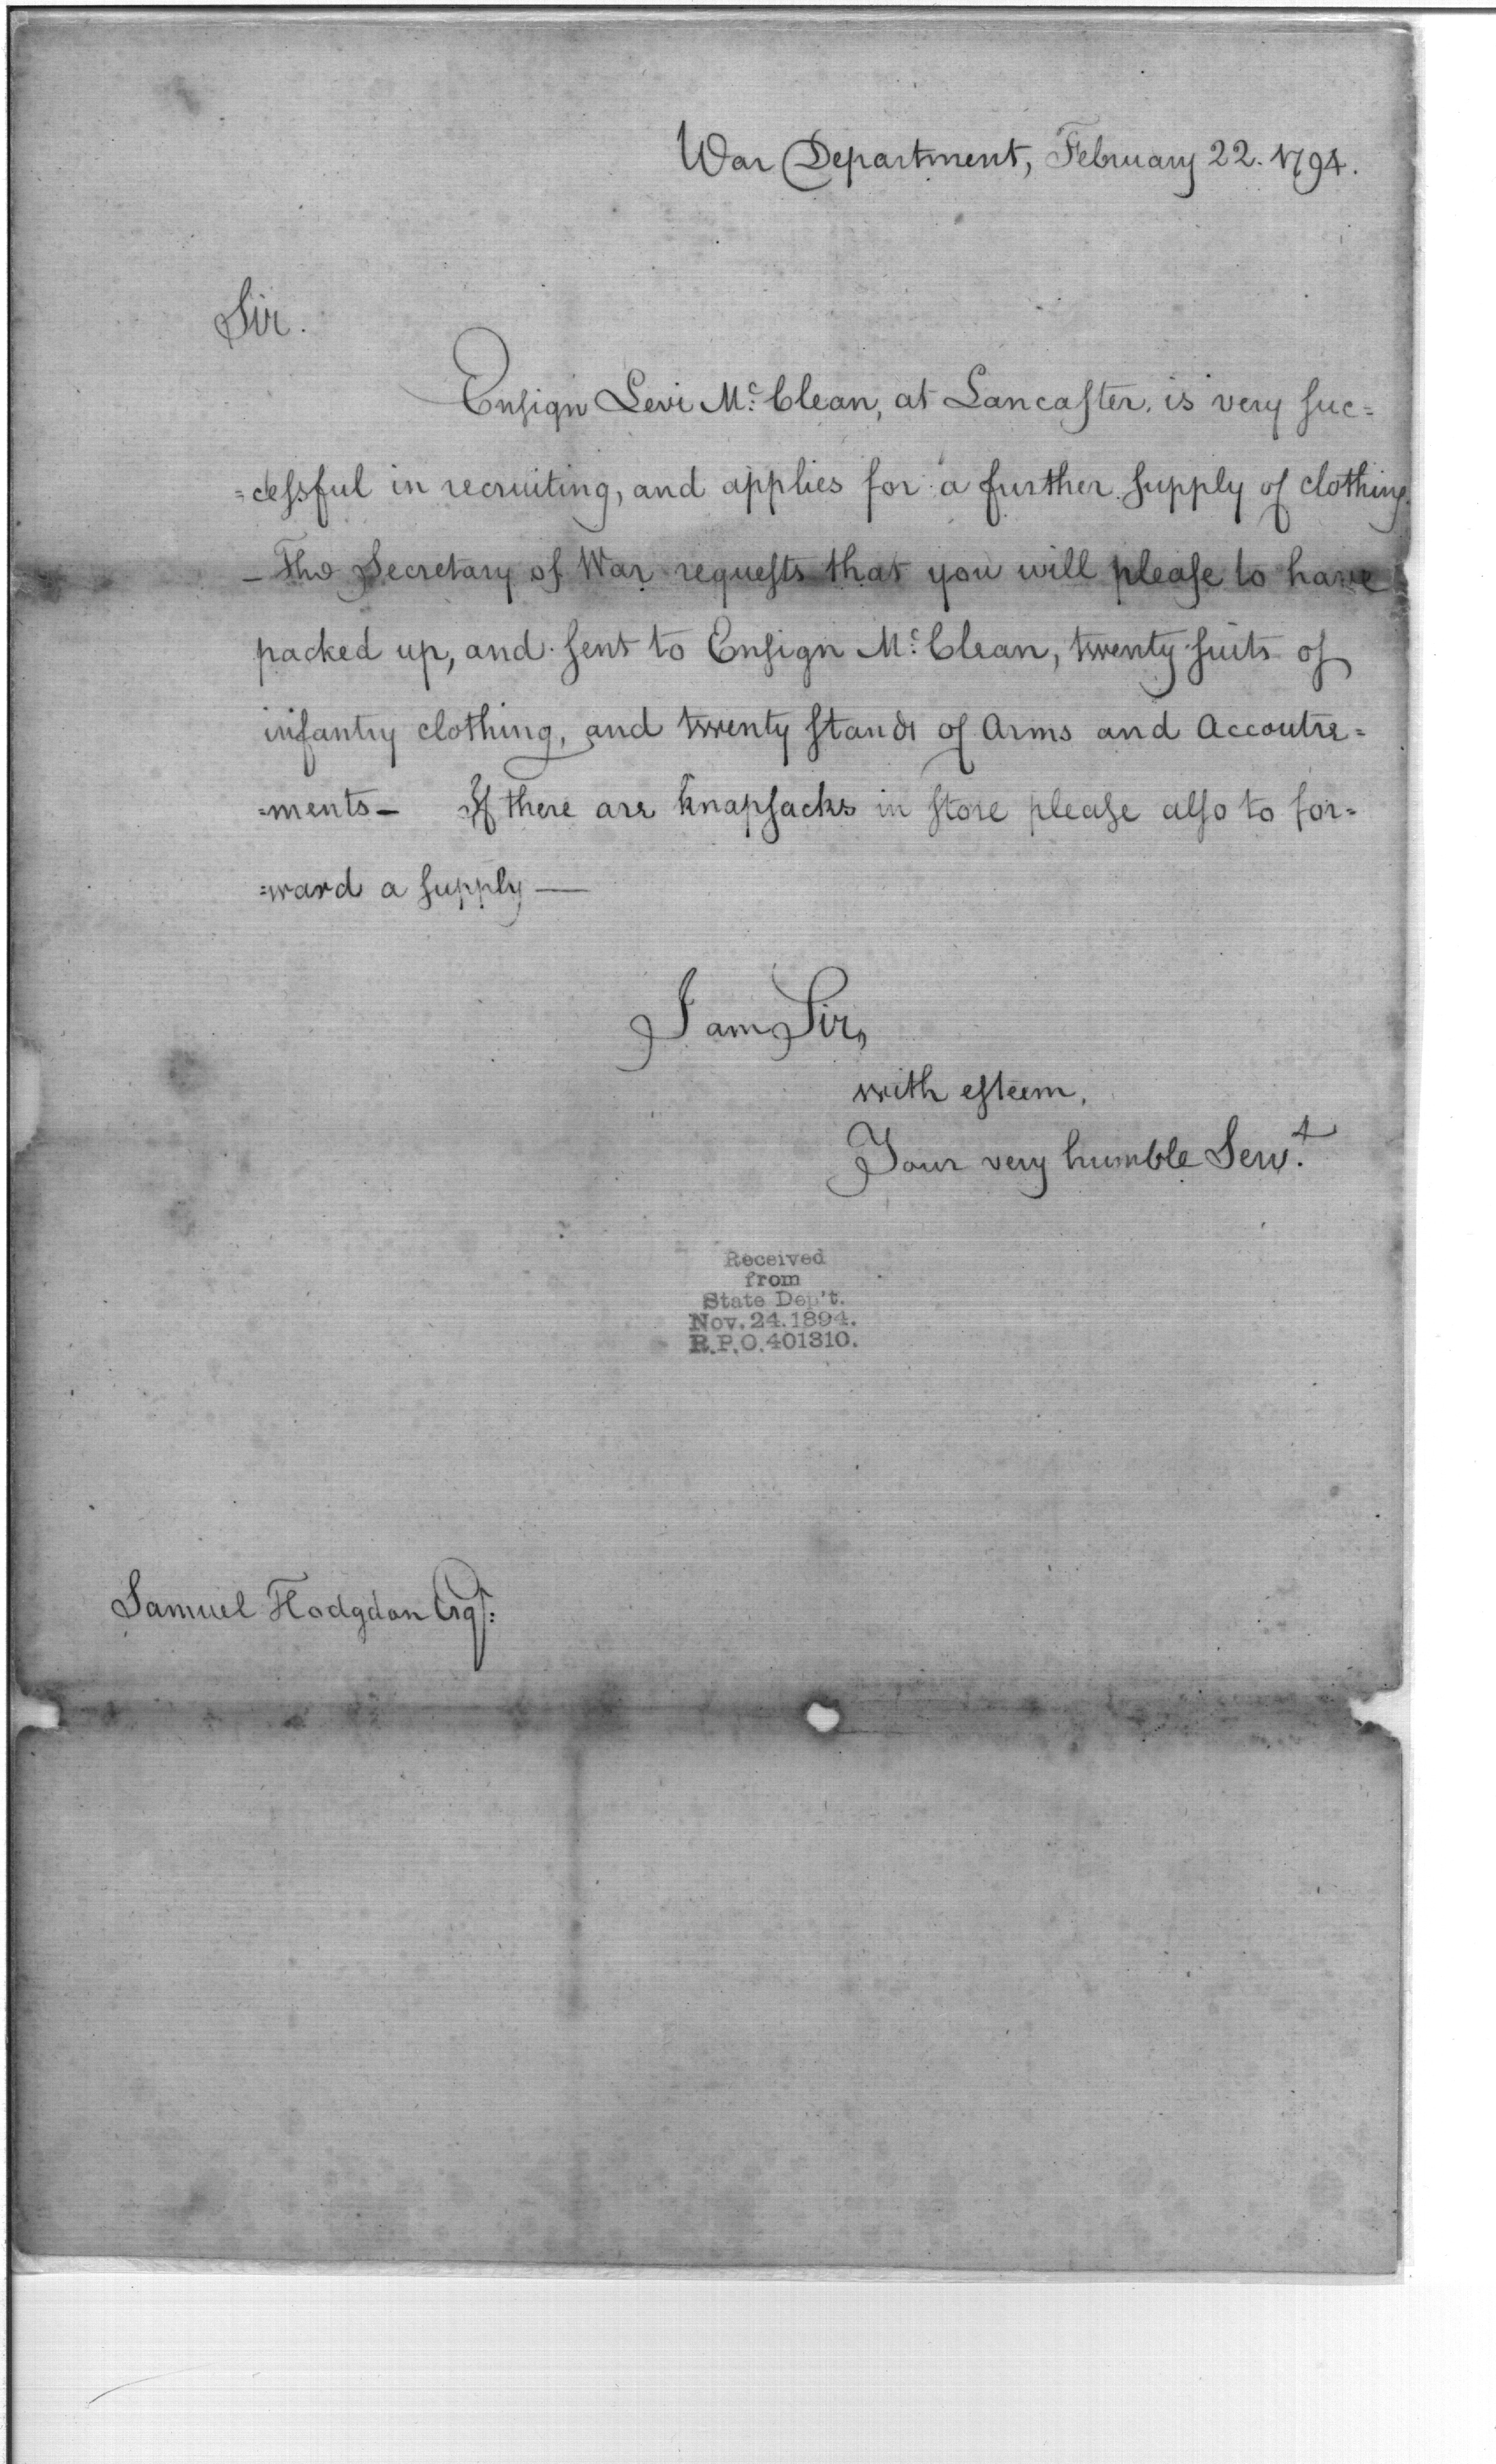 War Department, February 22. 1794.
Sir.
Ensign Levi Mc. Clean, at Lancaster, is very suc=
=cessful in recruiting, and applies for a further supply of clothing.
_ The Secretary of War requests that you will please to have
packed up, and sent to Ensign Mc. Clean, twenty suits of
infantry clothing, and twenty stands of Arms and Accoutre=
=ments _ If there are knapsacks in store please also to for=
=ward a supply —
I am Sir,
with esteem,
Your very humble Servt.
Received
from
State Dep't.
Nov. 24. 1894.
R.P.O. 401310.
Samuel Hodgdon Esqr.